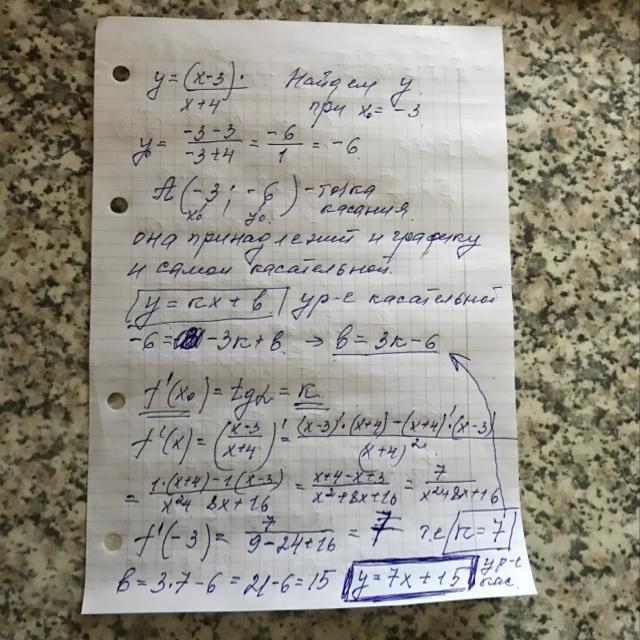 y = (x-3) / x+4 . Найдем y
при x₀ = -3
y₀ = -3-3 / -3+4 = -6 / 1 = -6
A(-3 ; -6) - точка
x₀ y₀ касания.
она принадлежит и графику
и самой касательной.
y = кx + в ур-е касательной
-6 = -3к + в → в = 3к - 6
f'(x₀) = tgα = к
f'(x) = (x-3 / x+4)' = (x-3)'·(x+4) - (x+4)'·(x-3) / (x+4)²
= 1·(x+4) - 1(x-3) / x²+ 8x+16 = x+4-x+3 / x²+8x+16 = 7 / x²+8x+16
f'(-3) = 7 / 9-24+16 = 7 т.е к = 7
в = 3·7-6 = 21-6 = 15 y = 7x + 15 ур-е
кас.